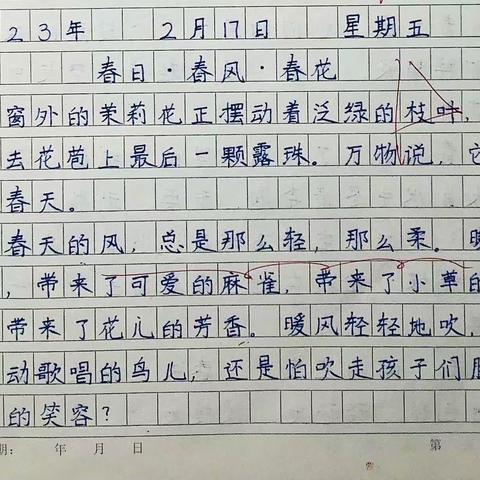 23年 2月17日 星期五
春日·春风·春花
窗外的茉莉花正摆动着泛绿的枝叶，
去花苞上最后一颗露珠。万物说，它
春天。
春天的风，总是那么轻，那么柔。暖
，带来了可爱的麻雀，带来了小草的
带来了花儿的芳香。暖风轻轻地吹，
动歌唱的鸟儿，还是怕吹走孩子们脸
的笑容？
期： 年 月 日 第